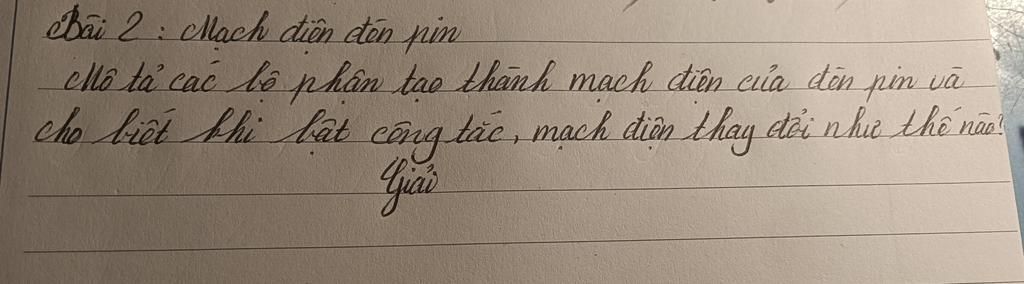 Bài 2: Mạch điện đèn pin
Mô tả các bộ phận tạo thành mạch điện của đèn pin và
cho biết khi bật công tắc, mạch điện thay đổi như thế nào?
Giải